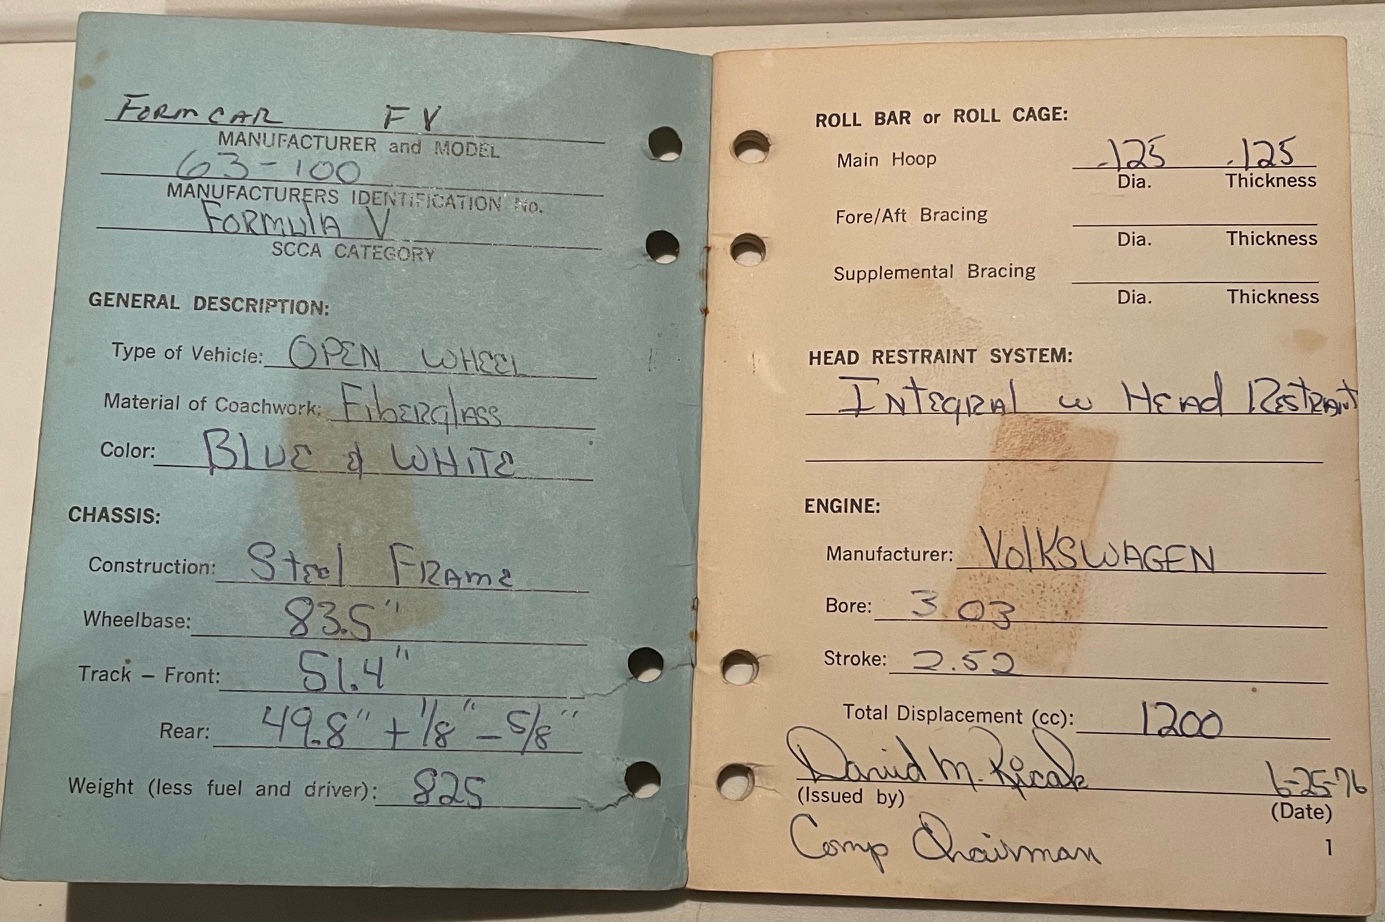 FORMCAR FV
MANUFACTURER and MODEL
63-100
MANUFACTURERS IDENTIFICATION No.
FORMULA V
SCCA CATEGORY
GENERAL DESCRIPTION:
Type of Vehicle: OPEN WHEEL
Material of Coachwork: Fiberglass
Color: BLUE & WHITE
CHASSIS:
Construction: Steel FRAME
Wheelbase: 83.5"
Track – Front: 51.4"
Rear: 49.8" + 1/8" - 5/8"
Weight (less fuel and driver): 825
ROLL BAR or ROLL CAGE:
Main Hoop .125 .125
Dia. Thickness
Fore/Aft Bracing
Dia. Thickness
Supplemental Bracing
Dia. Thickness
HEAD RESTRAINT SYSTEM:
INTEGRAL w HEAd RESTRANT
ENGINE:
Manufacturer: VOLKSWAGEN
Bore: 3.03
Stroke: 2.52
Total Displacement (cc): 1200
David M. 6-25-76
(Issued by) (Date)
Comp Chairman
1